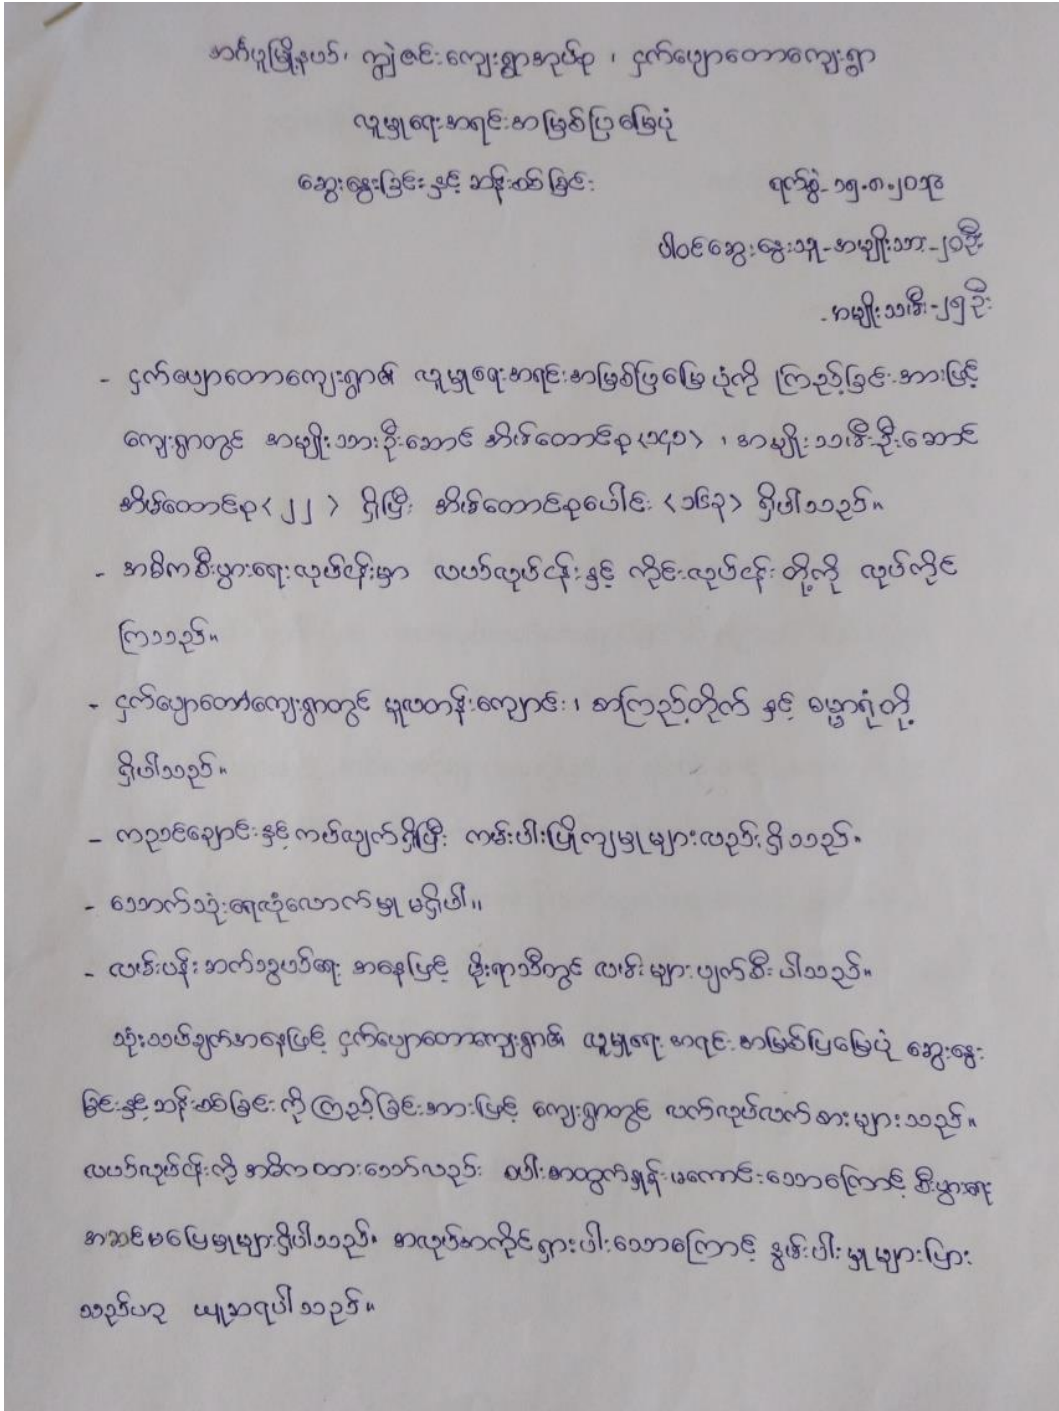 အင်္ဂပူမြို့နယ်၊ ကျွဲဇင်းကျေးရွာအုပ်စု ၊ ငှက်ပျောတောကျေးရွာ
လူမှုရေးအရင်းအမြစ်ပြမြေပုံ
ဆွေးနွေးခြင်းနှင့် ဆန်းစစ်ခြင်း ရက်စွဲ-၁၅.၈.၂၀၁၉
ပါဝင်ဆွေးနွေးသူ-အမျိုးသား-၂၀ဦး
-အမျိုးသမီး-၂၅ဦး
- ငှက်ပျောတောကျေးရွာ၏ လူမှုရေးအရင်းအမြစ်ပြမြေပုံကို ကြည့်ခြင်းအားဖြင့်
ကျေးရွာတွင် အမျိုးသားဦးဆောင် အိမ်ထောင်စု<၁၄၁> ၊ အမျိုးသမီးဦးဆောင်
အိမ်ထောင်စု<၂၂> ရှိပြီး အိမ်ထောင်စုပေါင်း <၁၆၃> ရှိပါသည်။
- အဓိကစီးပွားရေးလုပ်ငန်းမှာ လယ်လုပ်ငန်းနှင့် ကိုင်းလုပ်ငန်းတို့ကို လုပ်ကိုင်
ကြသည်။
- ငှက်ပျောတောကျေးရွာတွင် မူလတန်းကျောင်း၊ စာကြည့်တိုက် နှင့် ဓမ္မာရုံတို့
ရှိပါသည်။
- ကညင်ချောင်းနှင့်ကပ်လျက်ရှိပြီး ကမ်းပါးပြိုကျမှုများလည်းရှိသည်။
- သောက်သုံးရေလုံလောက်မှု မရှိပါ။
- လမ်းပန်းဆက်သွယ်ရေး အနေဖြင့် မိုးရာသီတွင် လမ်းများပျက်စီးပါသည်။
သုံးသပ်ချက်အနေဖြင့် ငှက်ပျောတောကျေးရွာ၏ လူမှုရေးအရင်းအမြစ်ပြမြေပုံ ဆွေးနွေး
ခြင်းနှင့်ဆန်းစစ်ခြင်းကိုကြည့်ခြင်းအားဖြင့် ကျေးရွာတွင် လက်လုပ်လက်စားများသည်။
လယ်လုပ်ငန်းကိုအဓိကထားသော်လည်း စပါးအထွက်နှုန်းမကောင်းသောကြောင့် စီးပွားရေး
အဆင်မပြေမှုများရှိပါသည်။ အလုပ်အကိုင်ရှားပါးသောကြောင့် နွမ်းပါးမှုများပြား
သည်ဟု ယူဆရပါသည်။